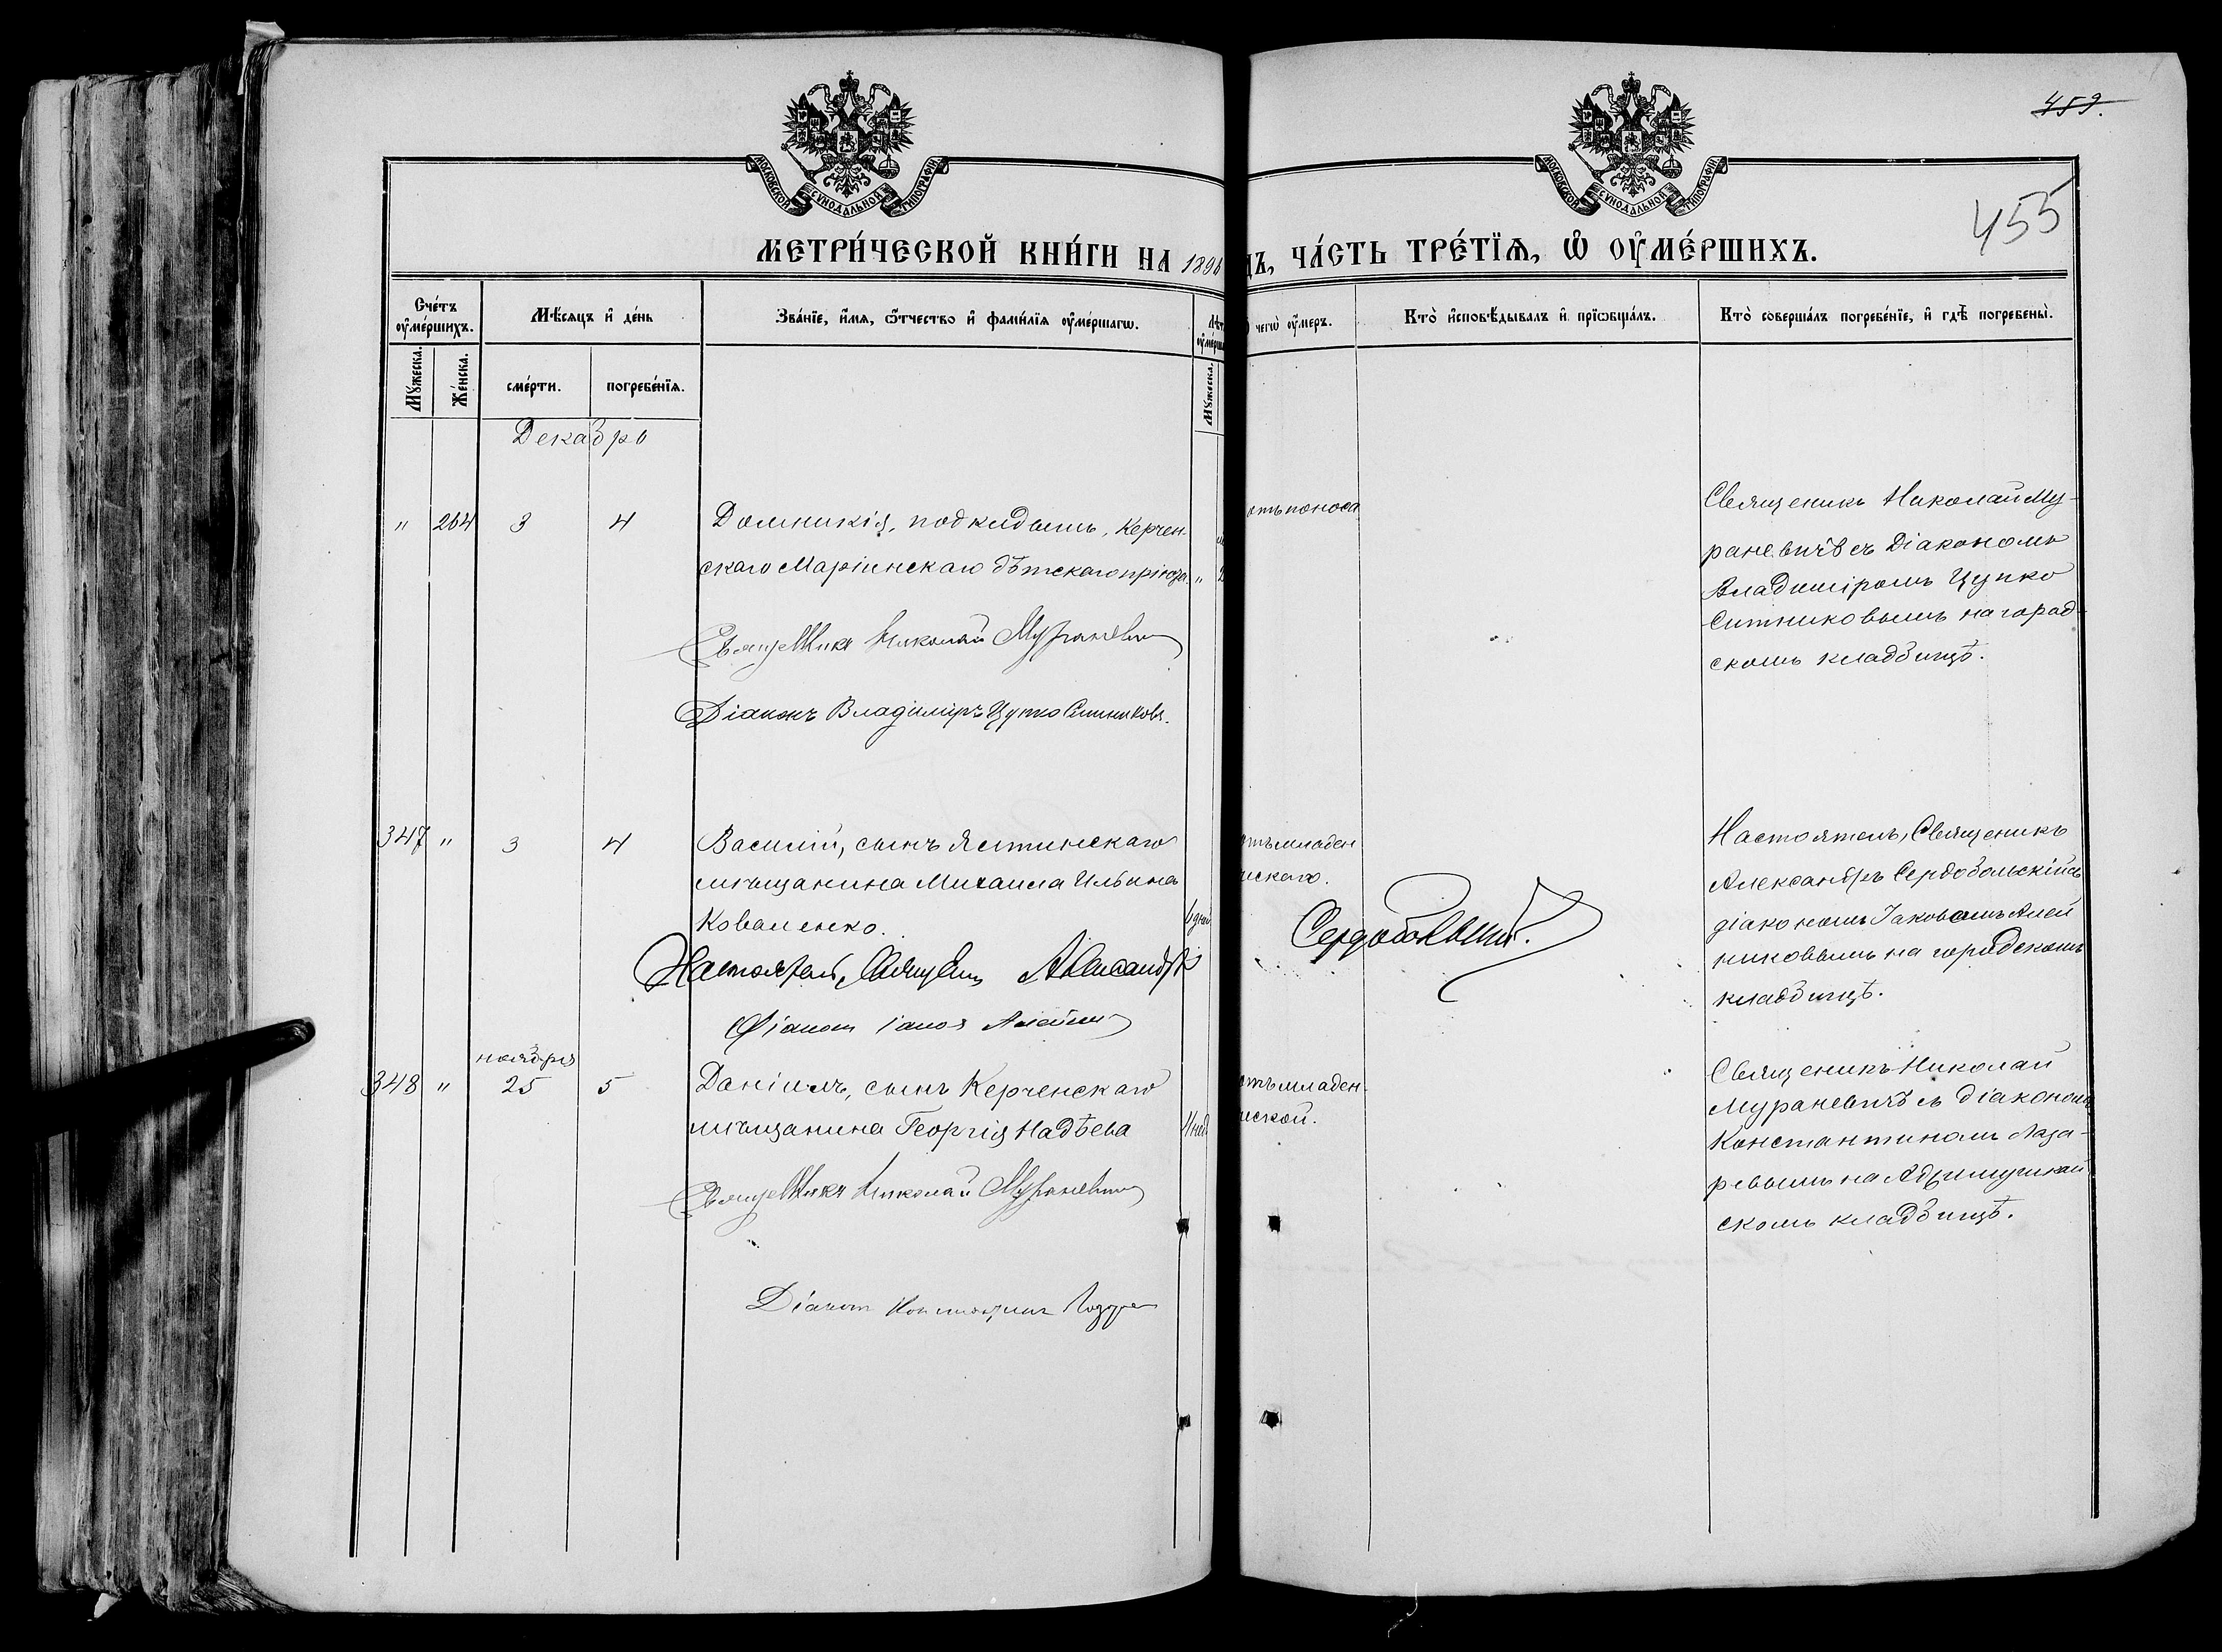 459.
455
МОСКОВСКОЙ СѴНОДАЛЬНОЙ ТИПОГРАФІИ
МОСКОВСКОЙ СѴНОДАЛЬНОЙ ТИПОГРАФІИ
МЕТРИ́ЧЕСКОЙ КНИ́ГИ НА 1896
ДЪ, ЧА́СТЬ ТРЕ́ТЇѦ, Ѡ҆ ОУ҆МЕ́РШИХЪ.
Сче́тъ оу҆ме́ршихъ.
Мѣ́сяцъ и҆ де́нь
Зва́нїе, и҆́мя, ѻ҆́тчество и҆ фами́лїя оу҆ме́ршагѡ.
чегѡ̀ оу҆́меръ.
Кто̀ и҆сповѣ́дывалъ и҆ прїѡбща́лъ.
Кто̀ соверша́лъ погребе́нїе, и҆ гдѣ̀ погребены̀.
Мꙋ́жеска.
Же́нска.
сме́рти.
погребе́нїя.
Мꙋ́жеска.
Декабрь
" 264 3 4 Домникія, подкидышъ, Керчен-
скаго Маріинскаго дѣтскаго пріюта. "
Священникъ Николай Мураневичъ
Діаконъ Владиміръ Цупко Ситниковъ.
отъ поноса
Священикъ Николай Му-
раневичъ съ Діакономъ
Владиміромъ Цупко
Ситниковымъ на город-
скомъ кладбищѣ.
347 " 3 4 Василій, сынъ Ялтинскаго
мѣщанина Михаила Ильина
Коваленко. дней
Настоятель, Священникъ Александръ
Діаконъ Іаковъ Алейниковъ
отъ младен
ческаго.
Сердобольскій.
Настоятель, Священикъ
Александръ Сердобольскій съ
діакономъ Іаковомъ Алей
никовымъ на городскомъ
кладбищѣ.
ноября
348 " 25 5 Даніилъ, сынъ Керченскаго
мѣщанина Георгія Надѣева
Священникъ Николай Мураневичъ
Діаконъ Константинъ Лазаревъ
отъ младен-
ческой.
Священикъ Николай
Мураневичъ съ діакономъ
Константиномъ Лаза-
ревымъ на Аджимушкай
скомъ кладбищѣ.